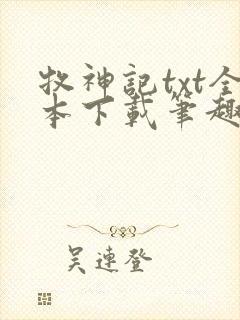 牧神記txt全
本下載筆趣
吴連登